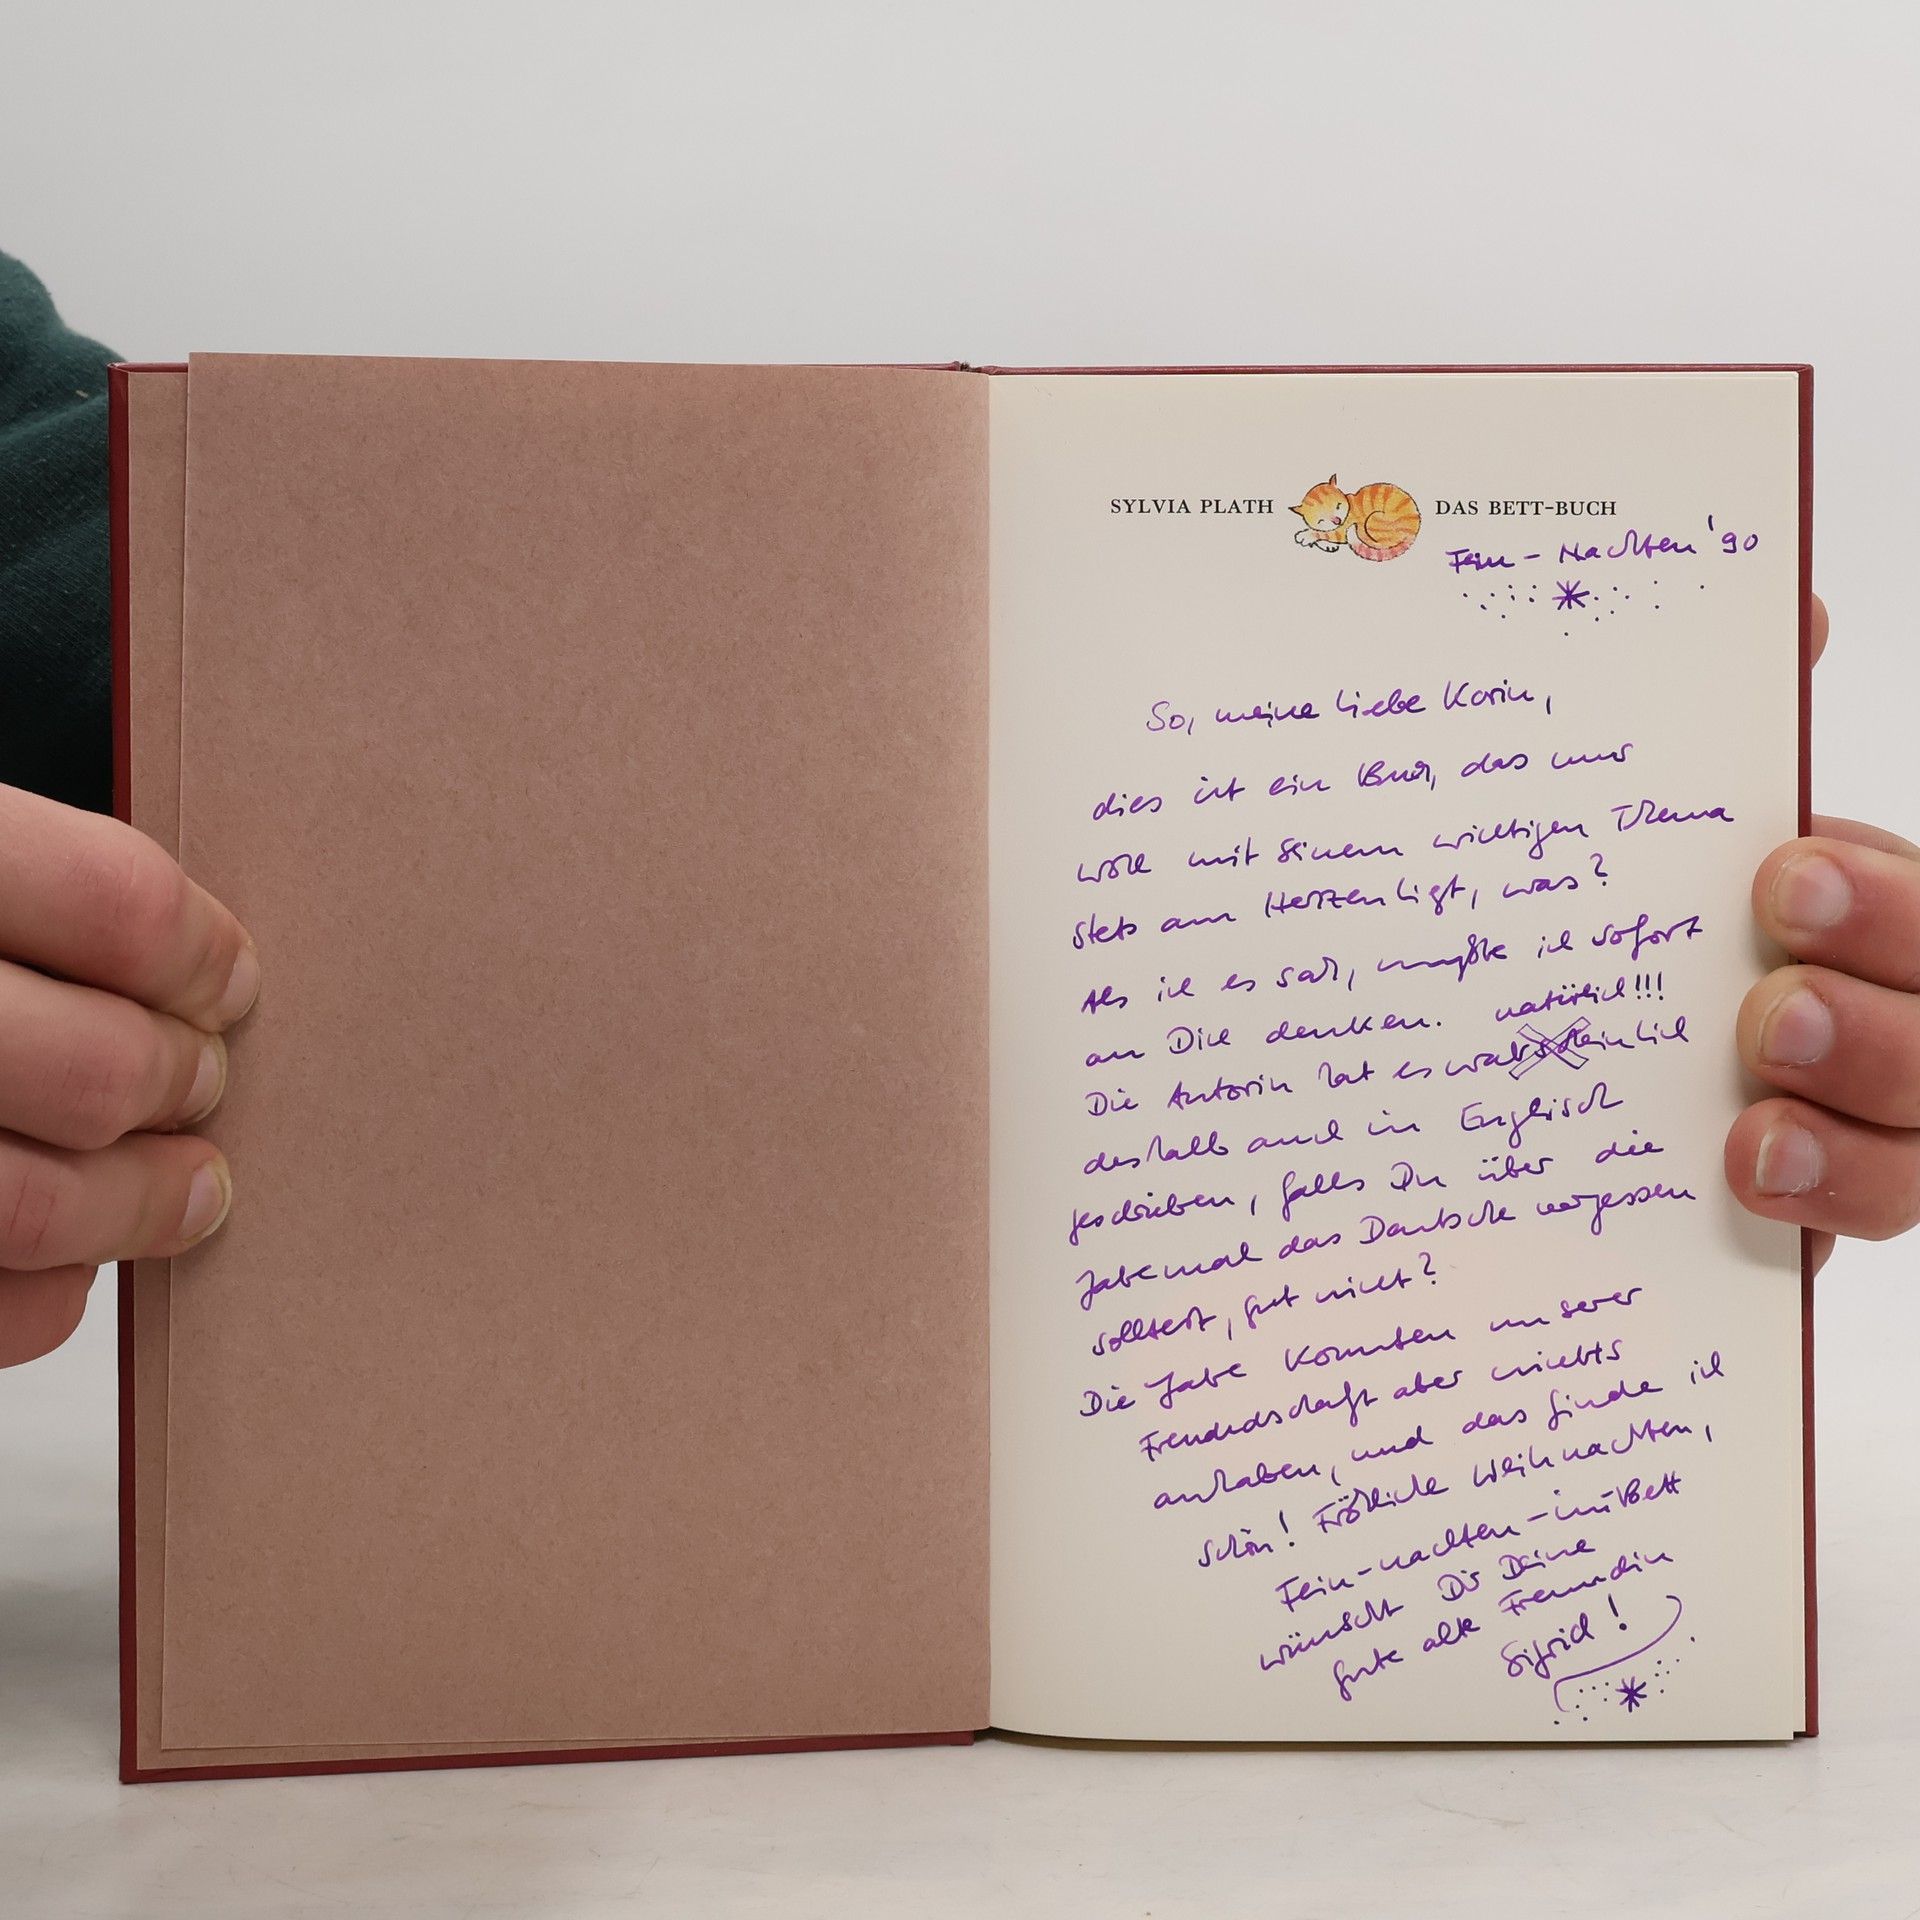 SYLVIA PLATH DAS BETT-BUCH
Fein - Nachten '90
So, meine liebe Karin,
dies ist ein Buch, das uns
wohl mit seinem wichtigen Thema
stets am Herzen ligt, was?
Als ich es sah, mußte ich sofort
an Dich denken. natürlich!!!
Die Autorin hat es wahrscheinlich
deshalb auch in Englisch
geschrieben, falls Du über die
Jahre mal das Deutsche vergessen
solltest, gut nicht?
Die Jahre konnten unserer
Freundschaft aber nichts
anhaben, und das finde ich
schön! Fröhliche Weihnachten,
Fein-nachten-im Bett
wünscht Dir Deine
gute alte Freundin
Sigrid!